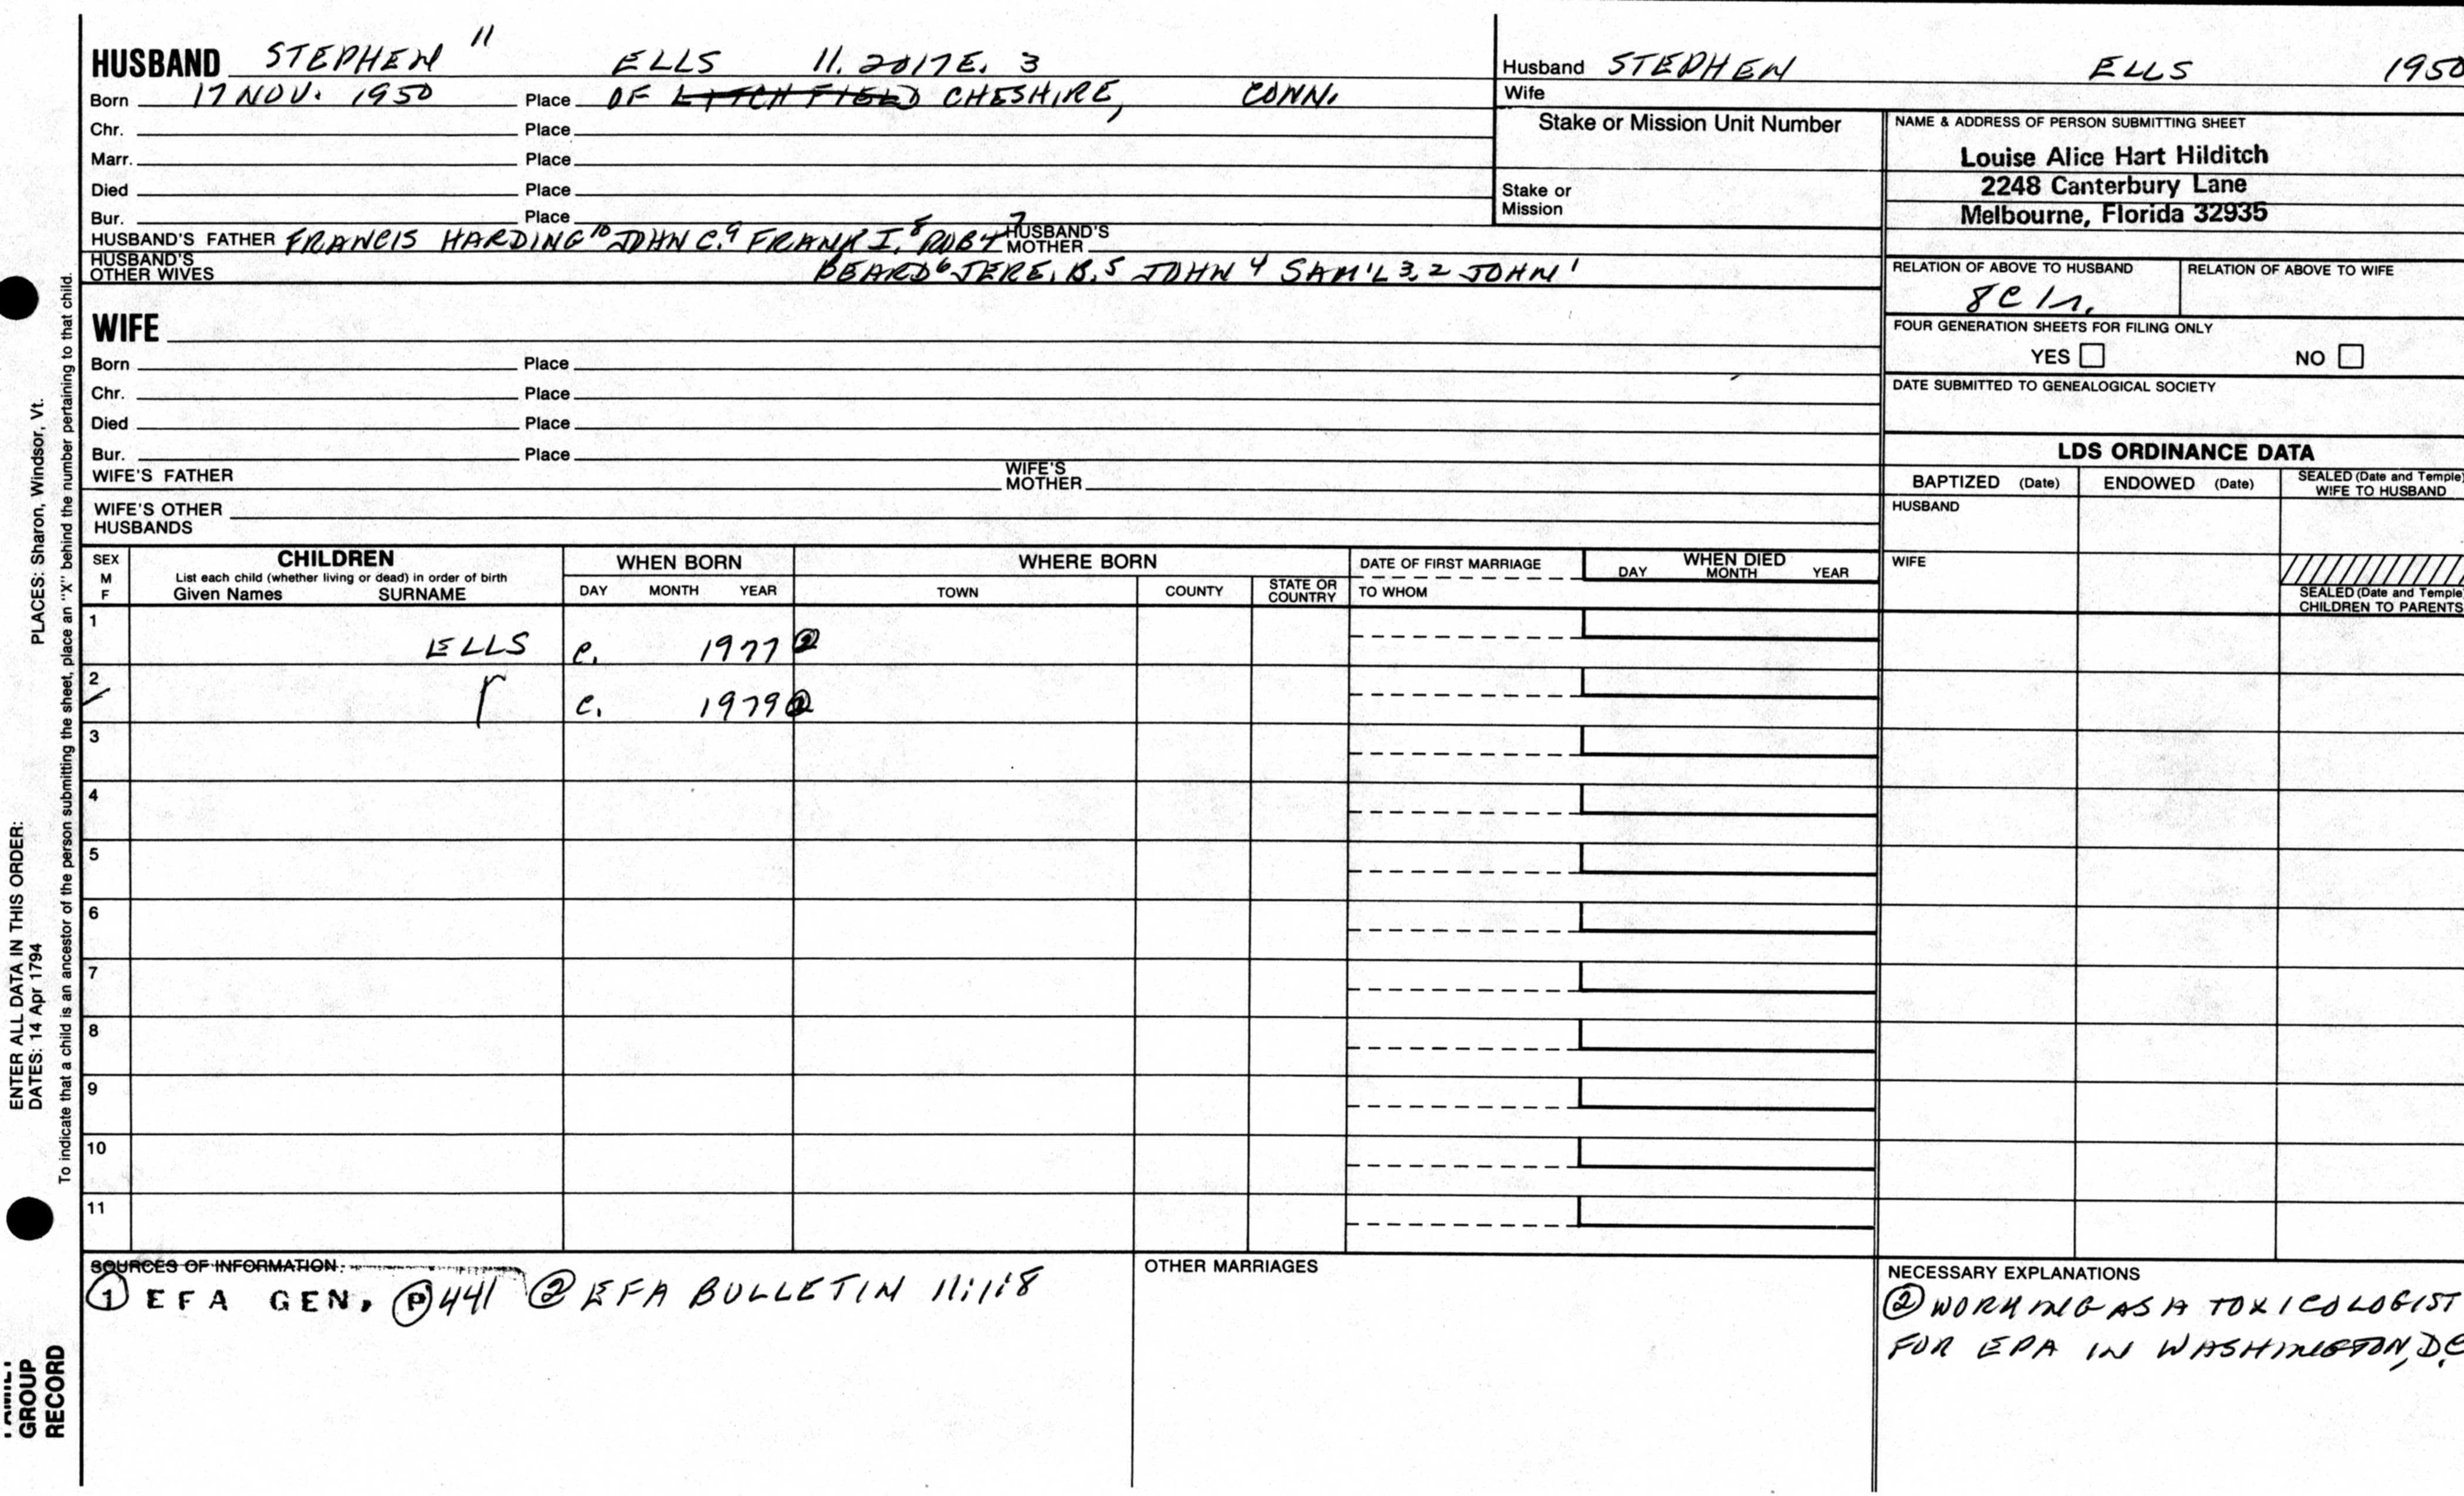 HUSBAND STEPHEN 11 ELLS 11. 2017E. 3
Born 17 NOV. 1950 Place OF LITCHFIELD CHESHIRE, CONN.
Chr. Place
Marr. Place
Died Place
Bur. Place
HUSBAND'S FATHER FRANCIS HARDING 10 JOHN C. 9 FRANK I. 8 ROBT 7 HUSBAND'S MOTHER
HUSBAND'S OTHER WIVES BEARD 6 JERE. B. 5 JOHN 4 SAM'L 3, 2 JOHN 1
Husband STEPHEN ELLS 1950
Wife
Stake or Mission Unit Number
Stake or
Mission
NAME & ADDRESS OF PERSON SUBMITTING SHEET
Louise Alice Hart Hilditch
2248 Canterbury Lane
Melbourne, Florida 32935
RELATION OF ABOVE TO HUSBAND RELATION OF ABOVE TO WIFE
8C 1r.
FOUR GENERATION SHEETS FOR FILING ONLY
YES NO
DATE SUBMITTED TO GENEALOGICAL SOCIETY
WIFE
Born Place
Chr. Place
Died Place
Bur. Place
WIFE'S FATHER WIFE'S MOTHER
WIFE'S OTHER
HUSBANDS
LDS ORDINANCE DATA
BAPTIZED (Date) ENDOWED (Date) SEALED (Date and Temple)
WIFE TO HUSBAND
HUSBAND
WIFE
SEALED (Date and Temple)
CHILDREN TO PARENTS
SEX
M
F
CHILDREN
List each child (whether living or dead) in order of birth
Given Names SURNAME
WHEN BORN
DAY MONTH YEAR
WHERE BORN
TOWN COUNTY STATE OR COUNTRY
DATE OF FIRST MARRIAGE
TO WHOM
WHEN DIED
DAY MONTH YEAR
1 ELLS c. 1977 2
2 c. 1979 2
3
4
5
6
7
8
9
10
11
SOURCES OF INFORMATION
1 EFA GEN. P 441 2 EFA BULLETIN 11:1:8
OTHER MARRIAGES
NECESSARY EXPLANATIONS
2 WORKING AS A TOXICOLOGIST
FOR EPA IN WASHINGTON, D.C
ENTER ALL DATA IN THIS ORDER:
DATES: 14 Apr 1794 PLACES: Sharon, Windsor, Vt.
To indicate that a child is an ancestor of the person submitting the sheet, place an "X" behind the number pertaining to that child.
FAMILY
GROUP
RECORD